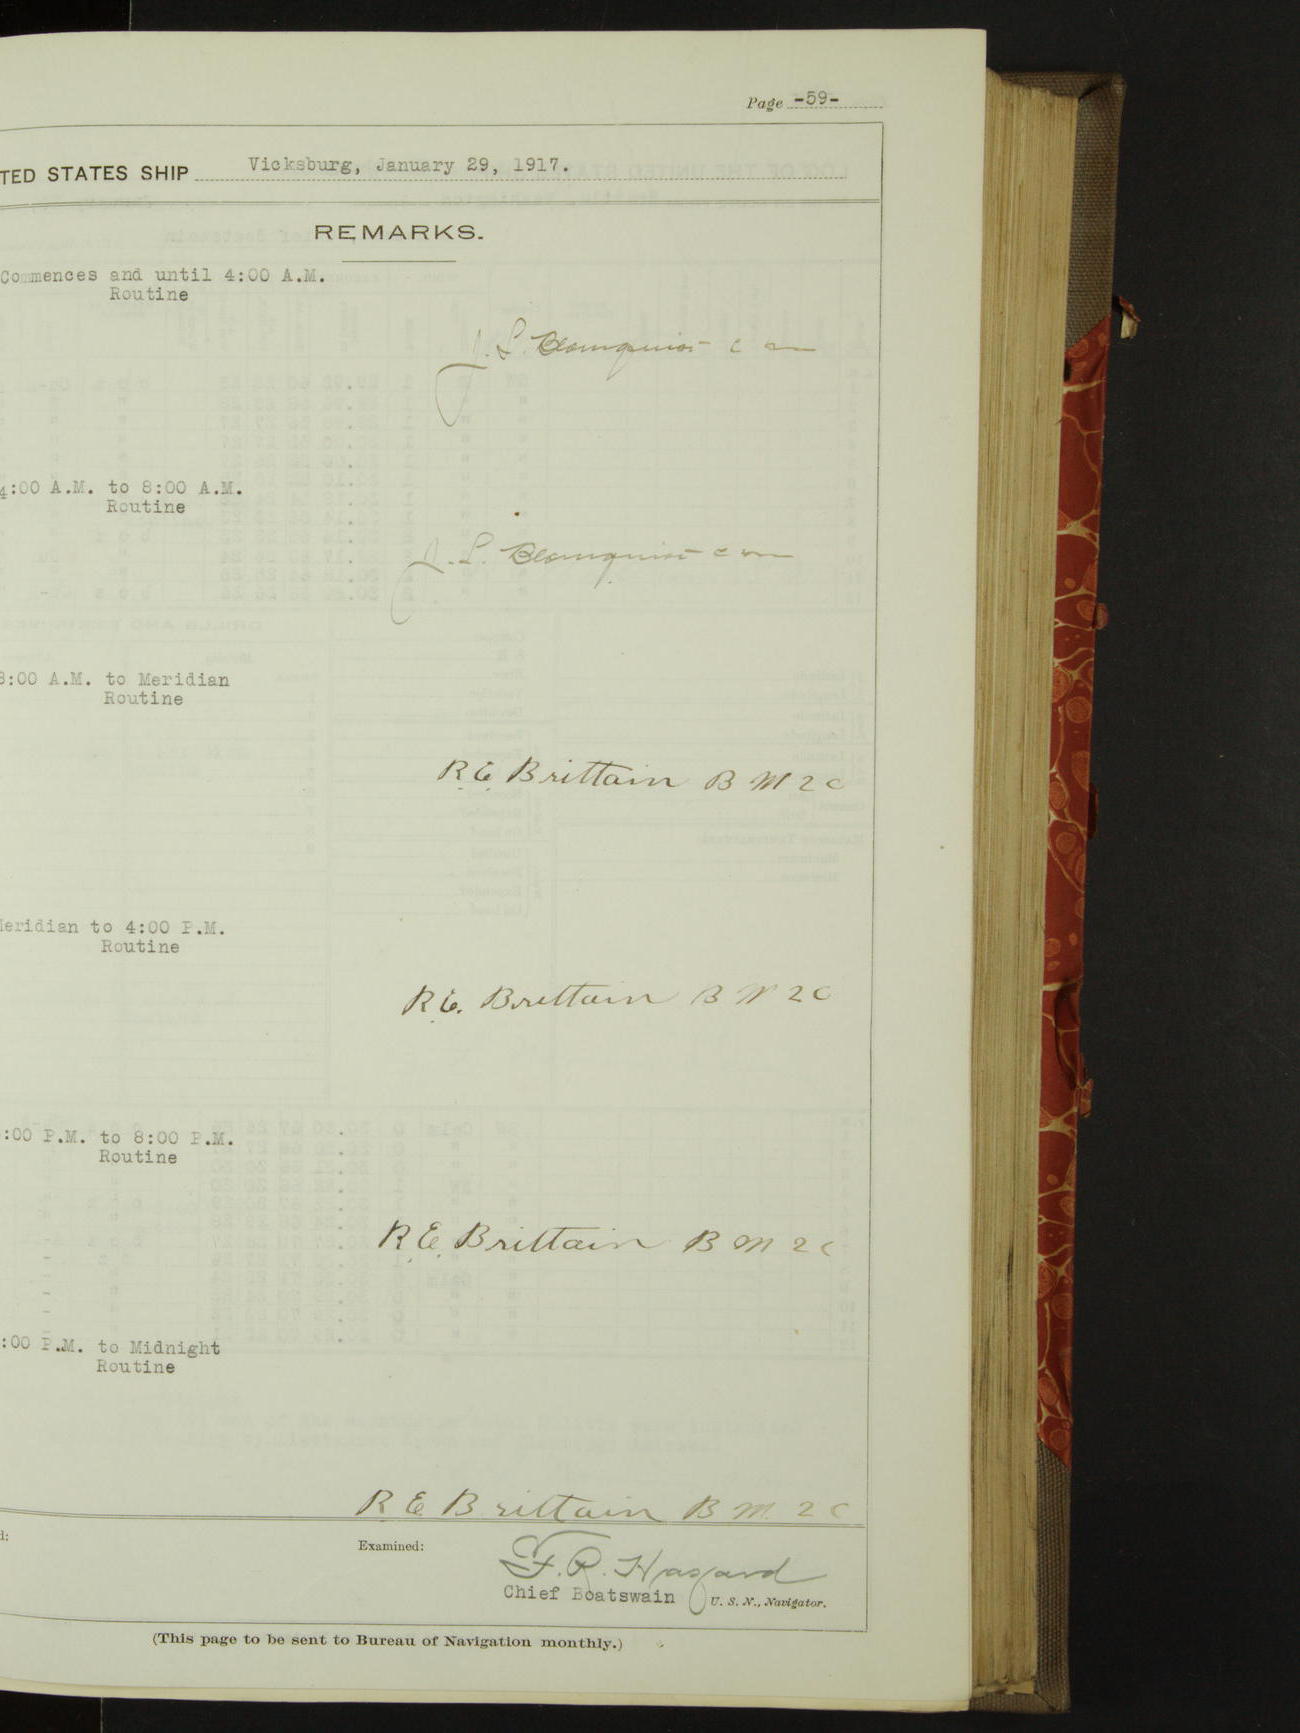 Page -59-
TED STATES SHIP Vicksburg, January 29, 1917.
REMARKS.
Commences and until 4:00 A.M.
Routine
J. L. Blomquist C M
4:00 A.M. to 8:00 A.M.
Routine
J. L. Blomquist C M
8:00 A.M. to Meridian
Routine
R E Brittain B M 2 C
Meridian to 4:00 P.M.
Routine
R E. Brittain B M 2 C
:00 P.M. to 8:00 P.M.
Routine
R E. Brittain B M 2 C
:00 P.M. to Midnight
Routine
R E Brittain B M 2 C
d:
Examined:
F. R. Hazard
Chief Boatswain U. S. N., Navigator.
(This page to be sent to Bureau of Navigation monthly.)